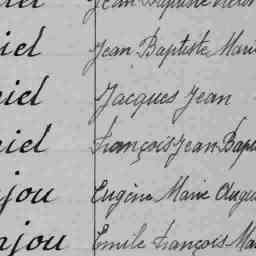 Jean Baptiste
iel Jean Baptiste Marie
iel Jacques Jean
iel François Jean Bap
jou Eugène Marie Augu
ajou Emile François Ma